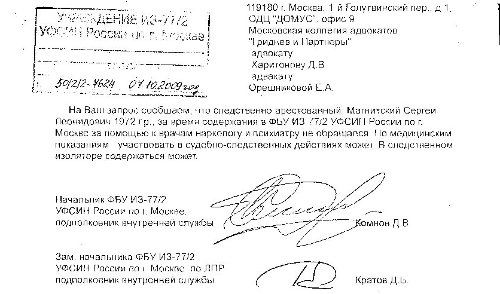 119180 г. Москва, 1-й Голутвинский пер., д.1,
ОДЦ "ДОМУС", офис 9
Московская коллегия адвокатов
"Гриднев и Партнеры"
адвокату
Харитонову Д.В.
адвокату
Орешниковой Е.А.
УЧРЕЖДЕНИЕ ИЗ-77/2
УФСИН России по г. Москве
50/2/2-4624 07.10.2009 год
На Ваш запрос сообщаем, что следственно-арестованный Магнитский Сергей
Леонидович 1972 г.р., за время содержания в ФБУ ИЗ-77/2 УФСИН России по г.
Москве за помощью к врачам наркологу и психиатру не обращался. По медицинским
показаниям участвовать в судебно-следственных действиях может. В следственном
изоляторе содержаться может.
Начальник ФБУ ИЗ-77/2
УФСИН России по г. Москве,
подполковник внутренней службы Комнов Д.В.
Зам. начальника ФБУ ИЗ-77/2
УФСИН России по г. Москве по ЛПР
подполковник внутренней службы Кратов Д.Б.